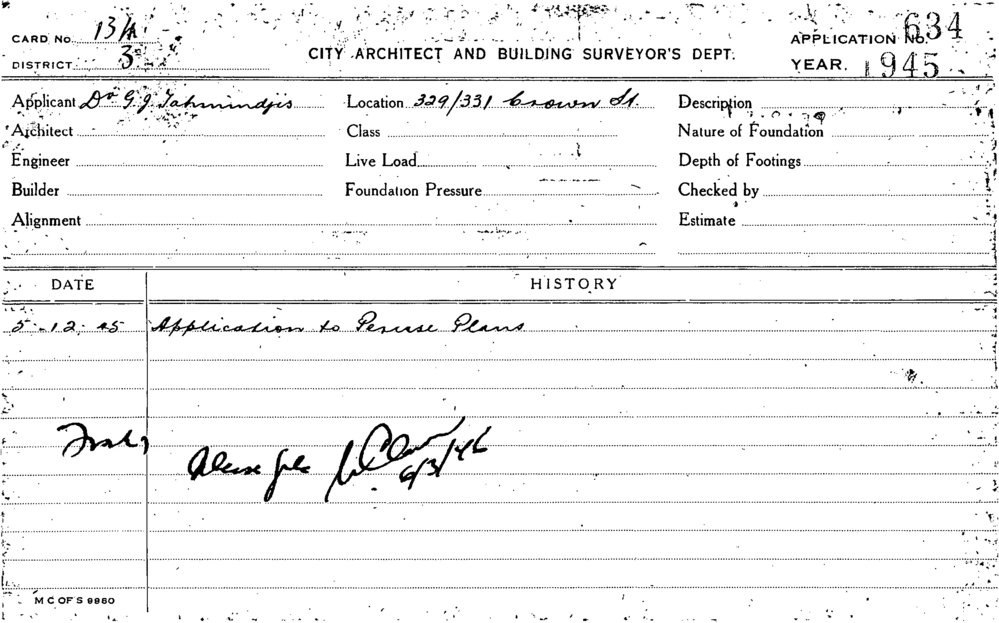 CARD No. 13/A
APPLICATION No. 634
DISTRICT 3
CITY ARCHITECT AND BUILDING SURVEYOR'S DEPT.
YEAR. 1945
Applicant Dr G. J. Tahmindjis Location 329/331 Crown St. Description
Architect Class Nature of Foundation
Engineer Live Load Depth of Footings
Builder Foundation Pressure Checked by
Alignment Estimate
DATE HISTORY
5.12.45 Application to Peruse Plans
Please file 6/3/46
M C OF S 9960